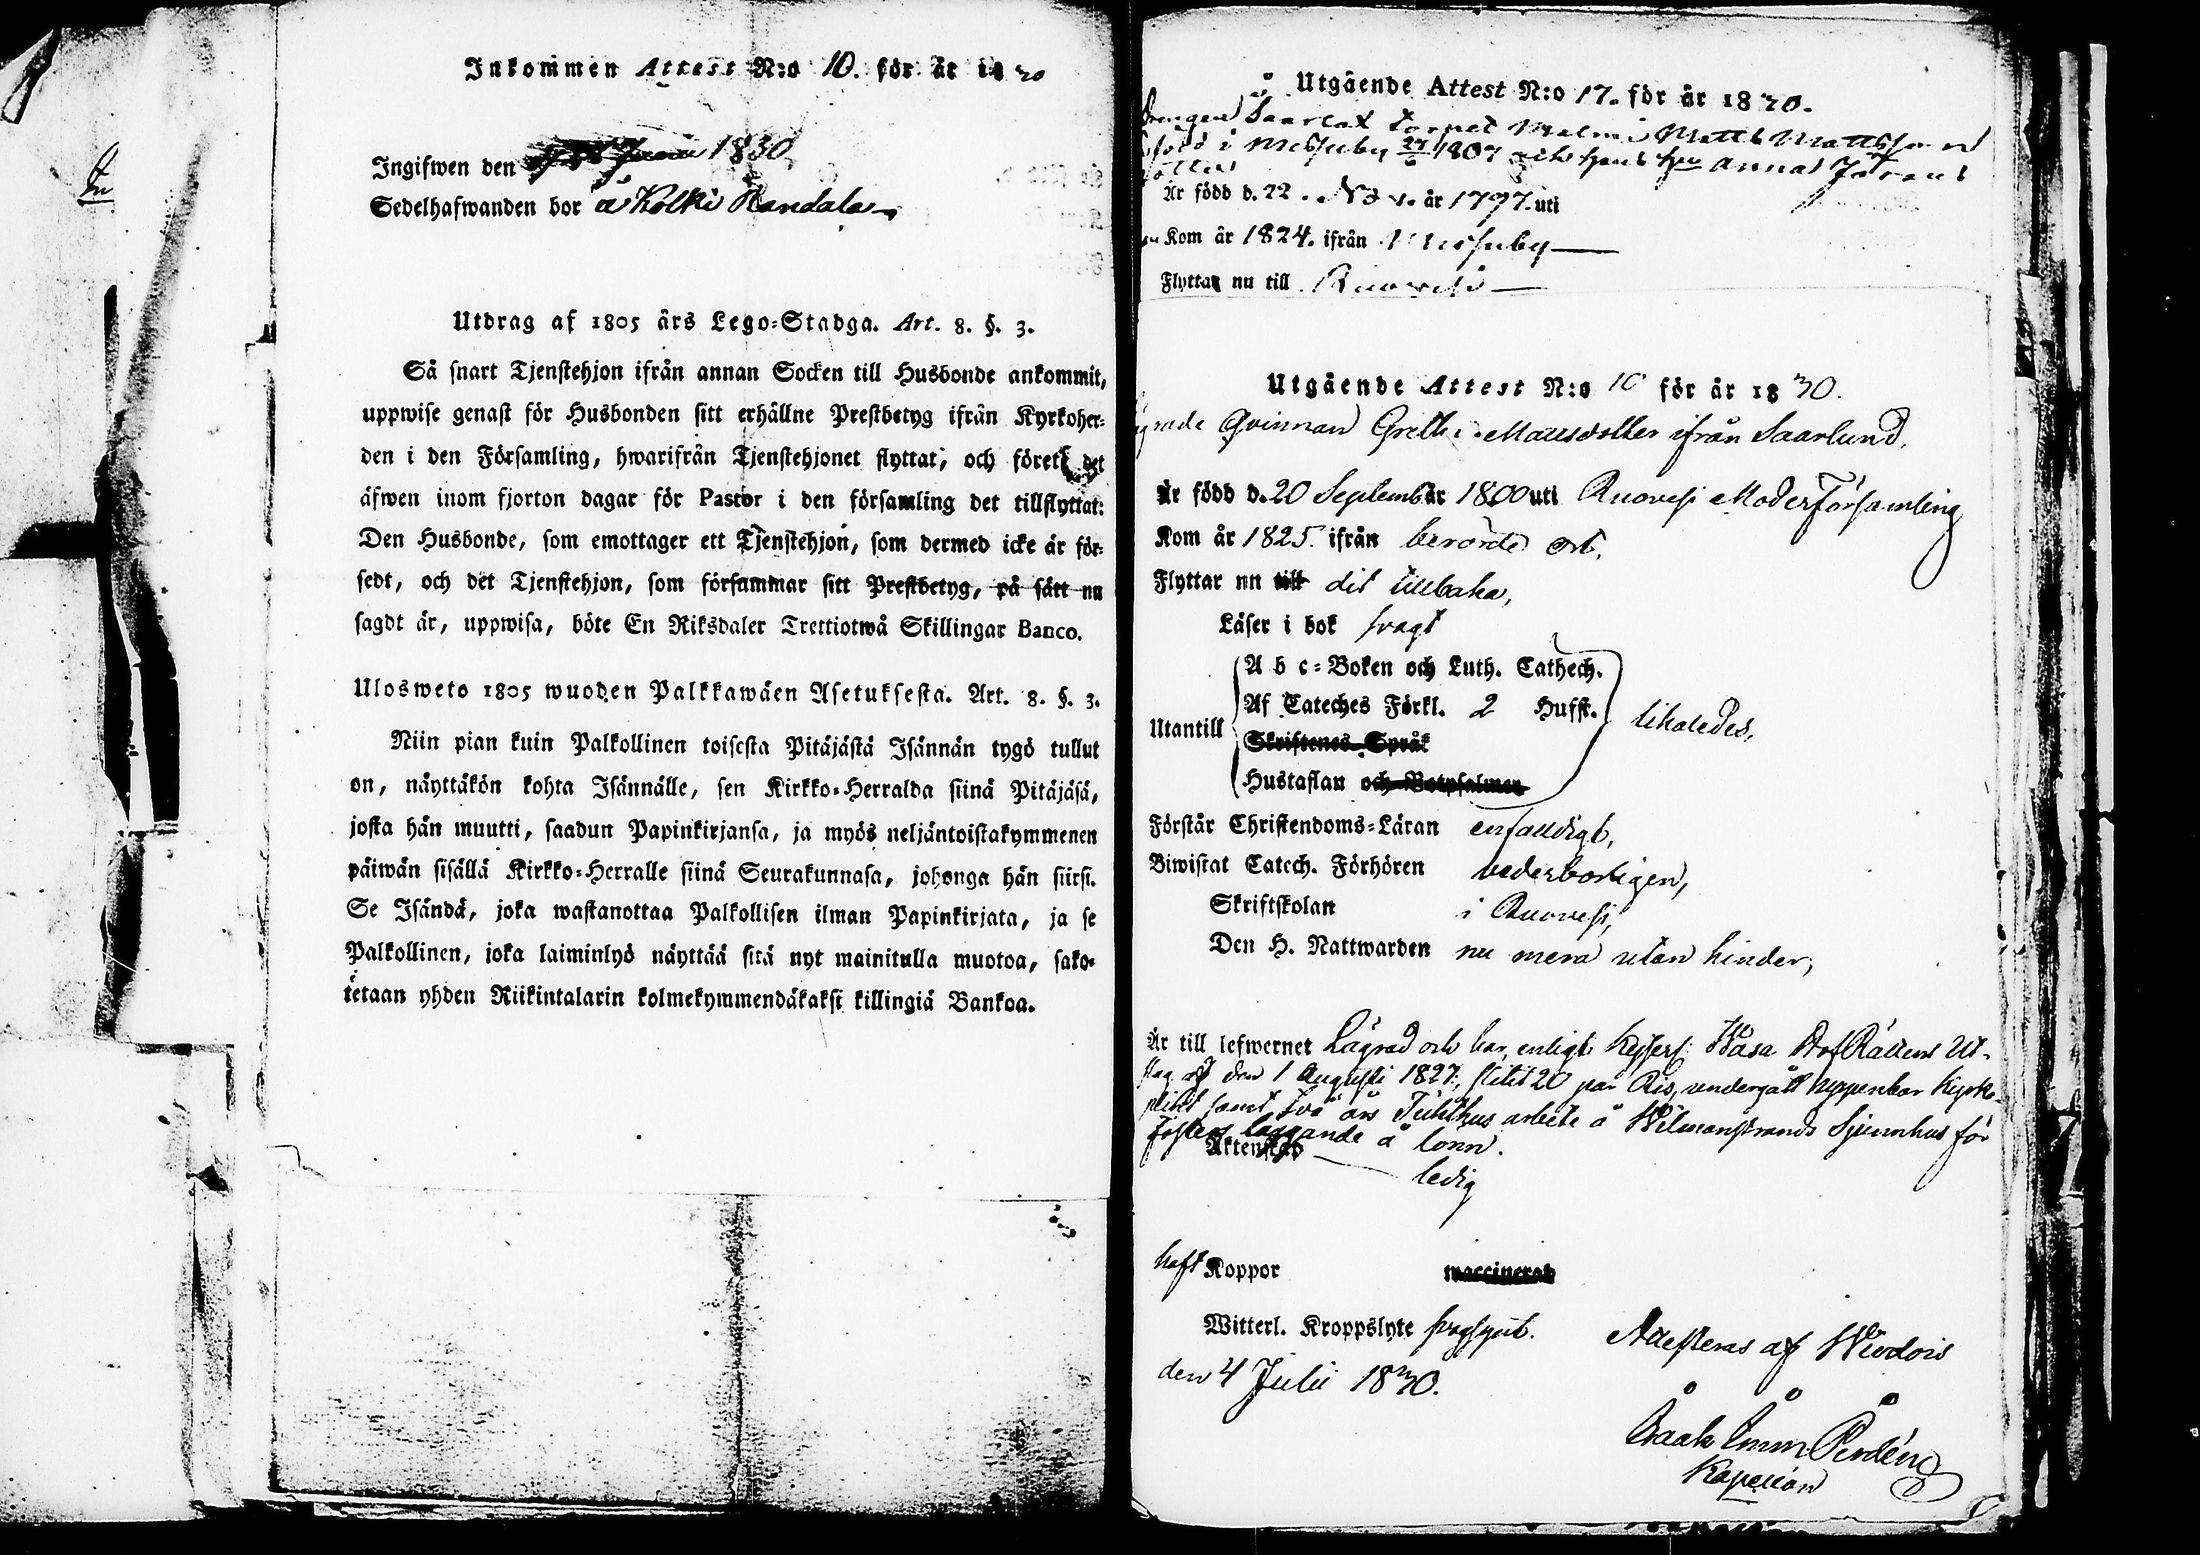 Inkommen Attest N:o 10. för år 1830
Ingifwen den 1830
Sedelhafwanden bor å Kolkki Randala
Utdrag af 1805 års Lego-Stadga. Art. 8. §. 3.
Så snart Tjenstehjon ifrån annan Socken till Husbonde ankommit,
uppwise genast för Husbonden sitt erhållne Prestbetyg ifrån Kyrkoher-
den i den Församling, hwarifrån Tjenstehjonet flyttat, och förete det
äfwen inom fjorton dagar för Pastor i den församling det tillflyttat:
Den Husbonde, som emottager ett Tjenstehjon, som dermed icke är för-
sedt, och det Tjenstehjon, som försummar sitt Prestbetyg, på sätt nu
sagdt är, uppwisa, böte En Riksdaler Trettiotwå Skillingar Banco.
Ulosweto 1805 wuoden Palkkawäen Asetuksesta. Art. 8. §. 3.
Niin pian kuin Palkollinen toisesta Pitäjästä Isännän tygö tullut
on, näyttäkön kohta Isännälle, sen Kirkko-Herralda siinä Pitäjäsä,
josta hän muutti, saadun Papinkirjansa, ja myös neljäntoistakymmenen
päiwän sisällä Kirkko-Herralle siinä Seurakunnasa, johonga hän siirsi.
Se Isändä, joka wastanottaa Palkollisen ilman Papinkirjata, ja se
Palkollinen, joka laiminlyö näyttää sitä nyt mainitulla muotoa, sako-
tetaan yhden Riikintalarin kolmekymmendäkaksi killingiä Bankoa.
Utgående Attest N:o 17. för år 1830.
Saarlax torpet Malmi Matts Mattsson
född i 27/6 1807 och hans Hu Anna Jörans
dotter
Är född d. 22. Nov. år 1797. uti
Kom år 1824. ifrån
Flyttar nu till Ruovesi
Utgående Attest N:o 10 för år 1830.
Qvinnan Greth. Mattsdotter ifrån Saarlund,
Är född d. 20 September 1800 uti Ruovesi Moderförsamling
Kom år 1825. ifrån berörde ort,
Flyttar nu till dit tillbaka,
Läser i bok svagt
Utantill
A b c-Boken och Luth. Cathech.
Af Cateches Förkl. 2 Hufst.
likaledes,
Skriftenes Språk
Hustaflan och Botpsalmen
Förstår Christendoms-Läran enfaldigt,
Biwistat Catech. Förhören vederbörligen,
Skriftskolan i Ruovesi,
Den H. Nattwarden nu mera utan hinder,
Är till lefwernet Lagrad och har, enligt Kejserl. Wasa HofRättens Ut-
slag af den 1 Augusti 1827, slitit 20 par Ris, undergått uppenbar Kyrko-
plikt samt två års Tukthus arbete å Wilmanstrands Spinnhus för
fosters läggande å lönn.
Äktenskap ledig
haft Koppor waccinerat
Witterl. Kroppslyte svagsynt.
den 4 Julii 1830.
Attesteras af Wirdois
Isaak Emm. Perdén
Kapellan